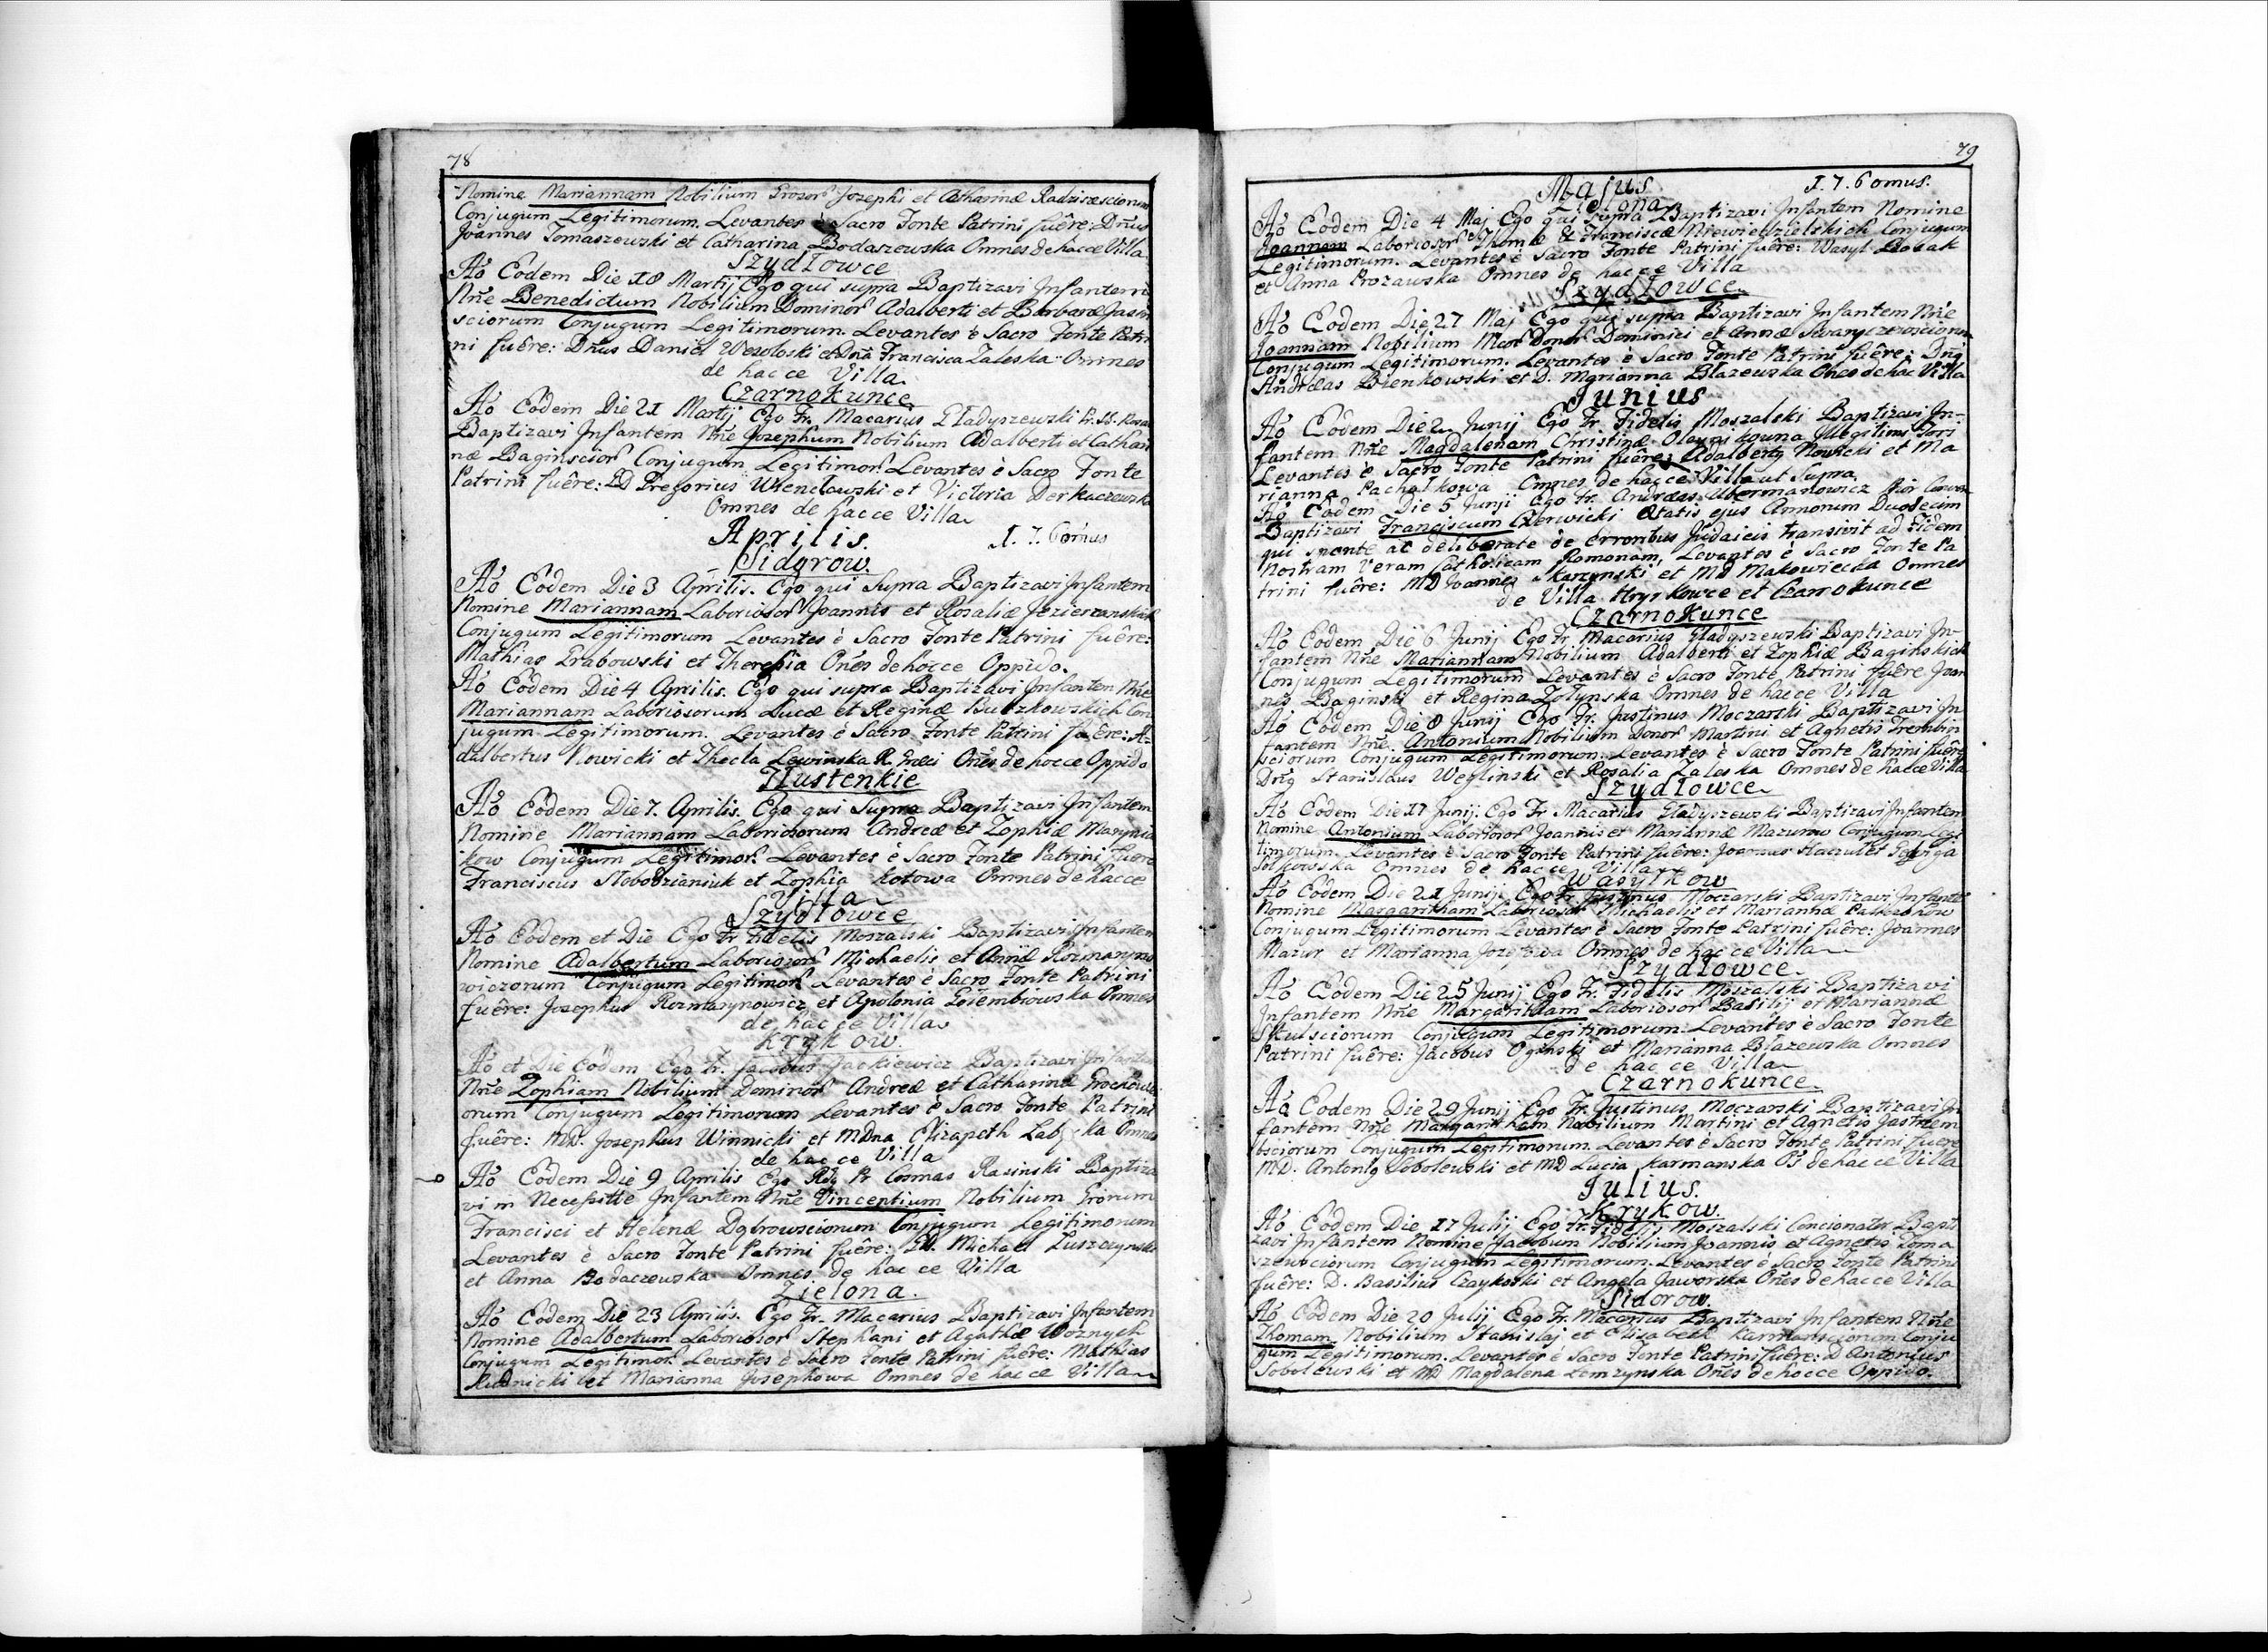 78
Nomine Mariannam Nobilium Josephi et Catharinæ
Conjugum Legitimorum. Levantes è Sacro Fonte Patrini fuêre: Dñus
Joannes Tomaszewski et Catharina Bodaszewska Omnes de hacce Villa
Szydłowce
Aõ Eodem Die 18 Martij Ego qui supra Baptizavi Infantem
Nñe Benedictum Nobilium Dominor Adalberti et Barbaræ
sciorum Conjugum Legitimorum. Levantes è Sacro Fonte Patri
ni fuêre: Dñus Daniel Wesoloski et Dña Francisca Zaleska Omnes
de hac ce Villa
Czarnokunce
Aõ Eodem Die 21 Martij Ego Fr. Macarius Gładyszewski
Baptizavi Infantem Nñe Josephum Nobilium Adalberti et Cathari
næ Baginscior Conjugum Legitimor. Levantes è Sacro Fonte
Patrini fuêre: et Victoria Derkaczewska
Omnes de hacce Villa
Aprilis. 1.7.6omus
Sidorow.
Aõ Eodem Die 3 Aprilis. Ego qui Supra Baptizavi Infantem
Nomine Mariannam Laboriosor Joannis et Rosaliæ
Conjugum Legitimorum Levantes è Sacro Fonte Patrini fuêre:
Mathias Grabowski et Theresia Oñes de hocce Oppido.
Aõ Eodem Die 4 Aprilis. Ego qui supra Baptizavi Infantem Nñe
Mariannam Laboriosorum Lucæ et Reginæ Con
jugum Legitimorum. Levantes è Sacro Fonte Patrini fuêre: A-
dalbertus Nowicki et Thecla Lewinska Oñes de hocce Oppido
Tłustenkie
Aõ Eodem Die 7. Aprilis. Ego qui Supra Baptizavi Infantem
Nomine Mariannam Laboriosorum Andreæ et Zophiæ
kow Conjugum Legitimor. Levantes è Sacro Fonte Patrini fuere
Franciscus Słobodzianiuk et Zophia Kotowa Omnes de hacce
Villa
Szydłowce
Aõ Eodem et Die Ego Fr Fidelis Moszalski Baptizavi Infantem
Nomine Adalbertum Laboriosor Michaelis et Annæ Rozmaryno
wiczorum Conjugum Legitimor Levantes è Sacro Fonte Patrini
fuêre: Josephus Rozmarynowicz et Apolonia Omnes
de hac ce Villa
Krykow.
Aõ et Die eodem Ego Fr. Jackiewicz Baptizavi Infantem
Nñe Zophiam Nobilium Dominor Andreæ et Catharinæ
orum Conjugum Legitimorum Levantes è Sacro Fonte Patrini
fuêre: MD. Josephus Winnicki et MDna Elizapeth Omnes
de hac ce Villa
Aõ Eodem Die 9 Aprilis Ego Cosmas Rasinski Baptiza
vi in Necessitte Infantem Nñe Vincentium Nobilium
Francisci et Helenæ Dąbrowsciorum Conjugum Legitimorum
Levantes è Sacro Fonte Patrini fuêre: Michael Łuszczynski
et Anna Bodaczewska Omnes de hac ce Villa
Zielona.
Aõ Eodem Die 23 Aprilis. Ego Fr. Macarius Baptizavi Infantem
Nomine Adalbertum Laboriosor Stephani et Agathæ Woznych
Conjugum Legitimor Levantes è Sacro Fonte Patrini fuere: Mathias
Rudnicki et Marianna Josephowa Omnes de hac ce Villa
79
Majus. 1.7.6omus.
Zielona
Aõ Eodem Die 4 Maj Ego qui Supra Baptizavi Infantem Nomine
Joannem Laboriosor Thomæ & Franciscæ Conjugum
Legitimorum. Levantes è Sacro Fonte Patrini fuêre: Wasyl
et Anna Prozawska Omnes de hac ce Villa
Szydłowce
Aõ Eodem Die 27 Maj Ego qui supra Baptizavi Infantem Nñe
Joannam Nobilium Dominici et Annæ
Conjugum Legitimorum. Levantes è Sacro Fonte Patrini fuêre:
Andreas Bienkowski et D. Marianna Błazewska de hac Villa
Junius
Aõ Eodem Die 2 Junij Ego Fr Fidelis Moszalski Baptizavi In-
fantem Nñe Magdalenam Christinæ Illegitimi Tori
Levantes è Sacro Fonte Patrini fuêre: Adalberty Nowicki et Ma
rianna Pachałkowa Omnes de hacce Villa ut Supra.
Aõ Eodem Die 5 Junij Ego Fr. Andreas Ubermanowicz
Baptizavi Franciscum Czerwicki Ætatis ejus Annorum Duodecim
qui sponte ac deliberate de erroribus Judaicis transivit ad Fidem
Nostram Veram Catholicam Romonam, Levantes è Sacro Fonte Pa
trini fuêre: MD Joannes Skarzynski et MD Makowiecka Omnes
de Villa et Czarnokunce
Czarnokunce
Aõ Eodem Die 6 Junij Ego Fr Macarius Gładyszewski Baptizavi In-
fantem Nñe Mariannam Nobilium Adalberti et Zophiæ Baginskich
Conjugum Legitimorum Levantes è Sacro Fonte Patrini fuêre Joan
nes Baginski et Regina Zołynska Omnes de hacce Villa
Aõ Eodem Die 8 Junij Ego Fr. Justinus Moczarski Baptizavi In
fantem Nñe Antonium Nobilium Donor Martini et Agnetis Trembin
sciorum Conjugum Legitimorum. Levantes è Sacro Fonte Patrini fuêre
Stanislaus Weglinski et Rosalia Zaleska Omnes de hacce Villa
Szydłowce
Aõ Eodem Die 17 Junij. Ego Fr Macarius Gładyszewski Baptizavi Infantem
Nomine Antonium Laboriosor Joannis et Mariannæ Mazurow Conjugum Legi
timorum. Levantes è Sacro Fonte Patrini fuêre: Joannes
Omnes de hacce Villa
Wasylkow
Aõ Eodem Die 21 Junij Ego Fr Justinus Moczarski Baptizavi Infante
Nomine Margaritham Laboriosor Michaelis et Mariannæ
Conjugum Legitimorum Levantes è Sacro Fonte Patrini fuêre: Joannes
Mazur et Marianna Omnes de hac ce Villa
Szydłowce
Aõ Eodem Die 25 Junij Ego Fr. Fidelis Moszalski Baptizavi
Infantem Nñe Margaritham Laboriosor Basilij et Mariannæ
Skulsciorum Conjugum Legitimorum. Levantes è Sacro Fonte
Patrini fuêre: Jacobus Oginski et Marianna Błazewska Omnes
de hac ce Villa
Czarnokunce
Aõ Eodem Die 29 Junij Ego Fr. Justinus Moczarski Baptizavi In
fantem Nñe Margaritham Nobilium Martini et Agnetis Jastrzem
bsciorum Conjugum Legitimorum. Levantes è Sacro Fonte Patrini fuere
MD. Sobolewski et MD Lucia Karmanska de hac ce Villa
Julius.
Krykow.
Aõ Eodem Die 17 Julij Ego Fr. Fidelis Moszalski Concionator Bapti
zavi Infantem Nomine Jacobum Nobilium Joannis et Agnetis Toma
szewsciorum Conjugum Legitimorum. Levantes è Sacro Fonte Patrini
fuêre: D. Basilius Czaykoski et Angela Jaworska Oñes de hac ce Villa
Sidorow.
Aõ Eodem Die 20 Julij Ego Fr. Macarius Baptizavi Infantem Nñe
Thomam Nobilium Stanislaj et Elisabeth Karmansciorum Conju
gum Legitimorum. Levantes è Sacro Fonte Patrini fuêre: D Antonius
Sobolewski et MD Magdalena Lemzynska Oñes de hocce Oppido.